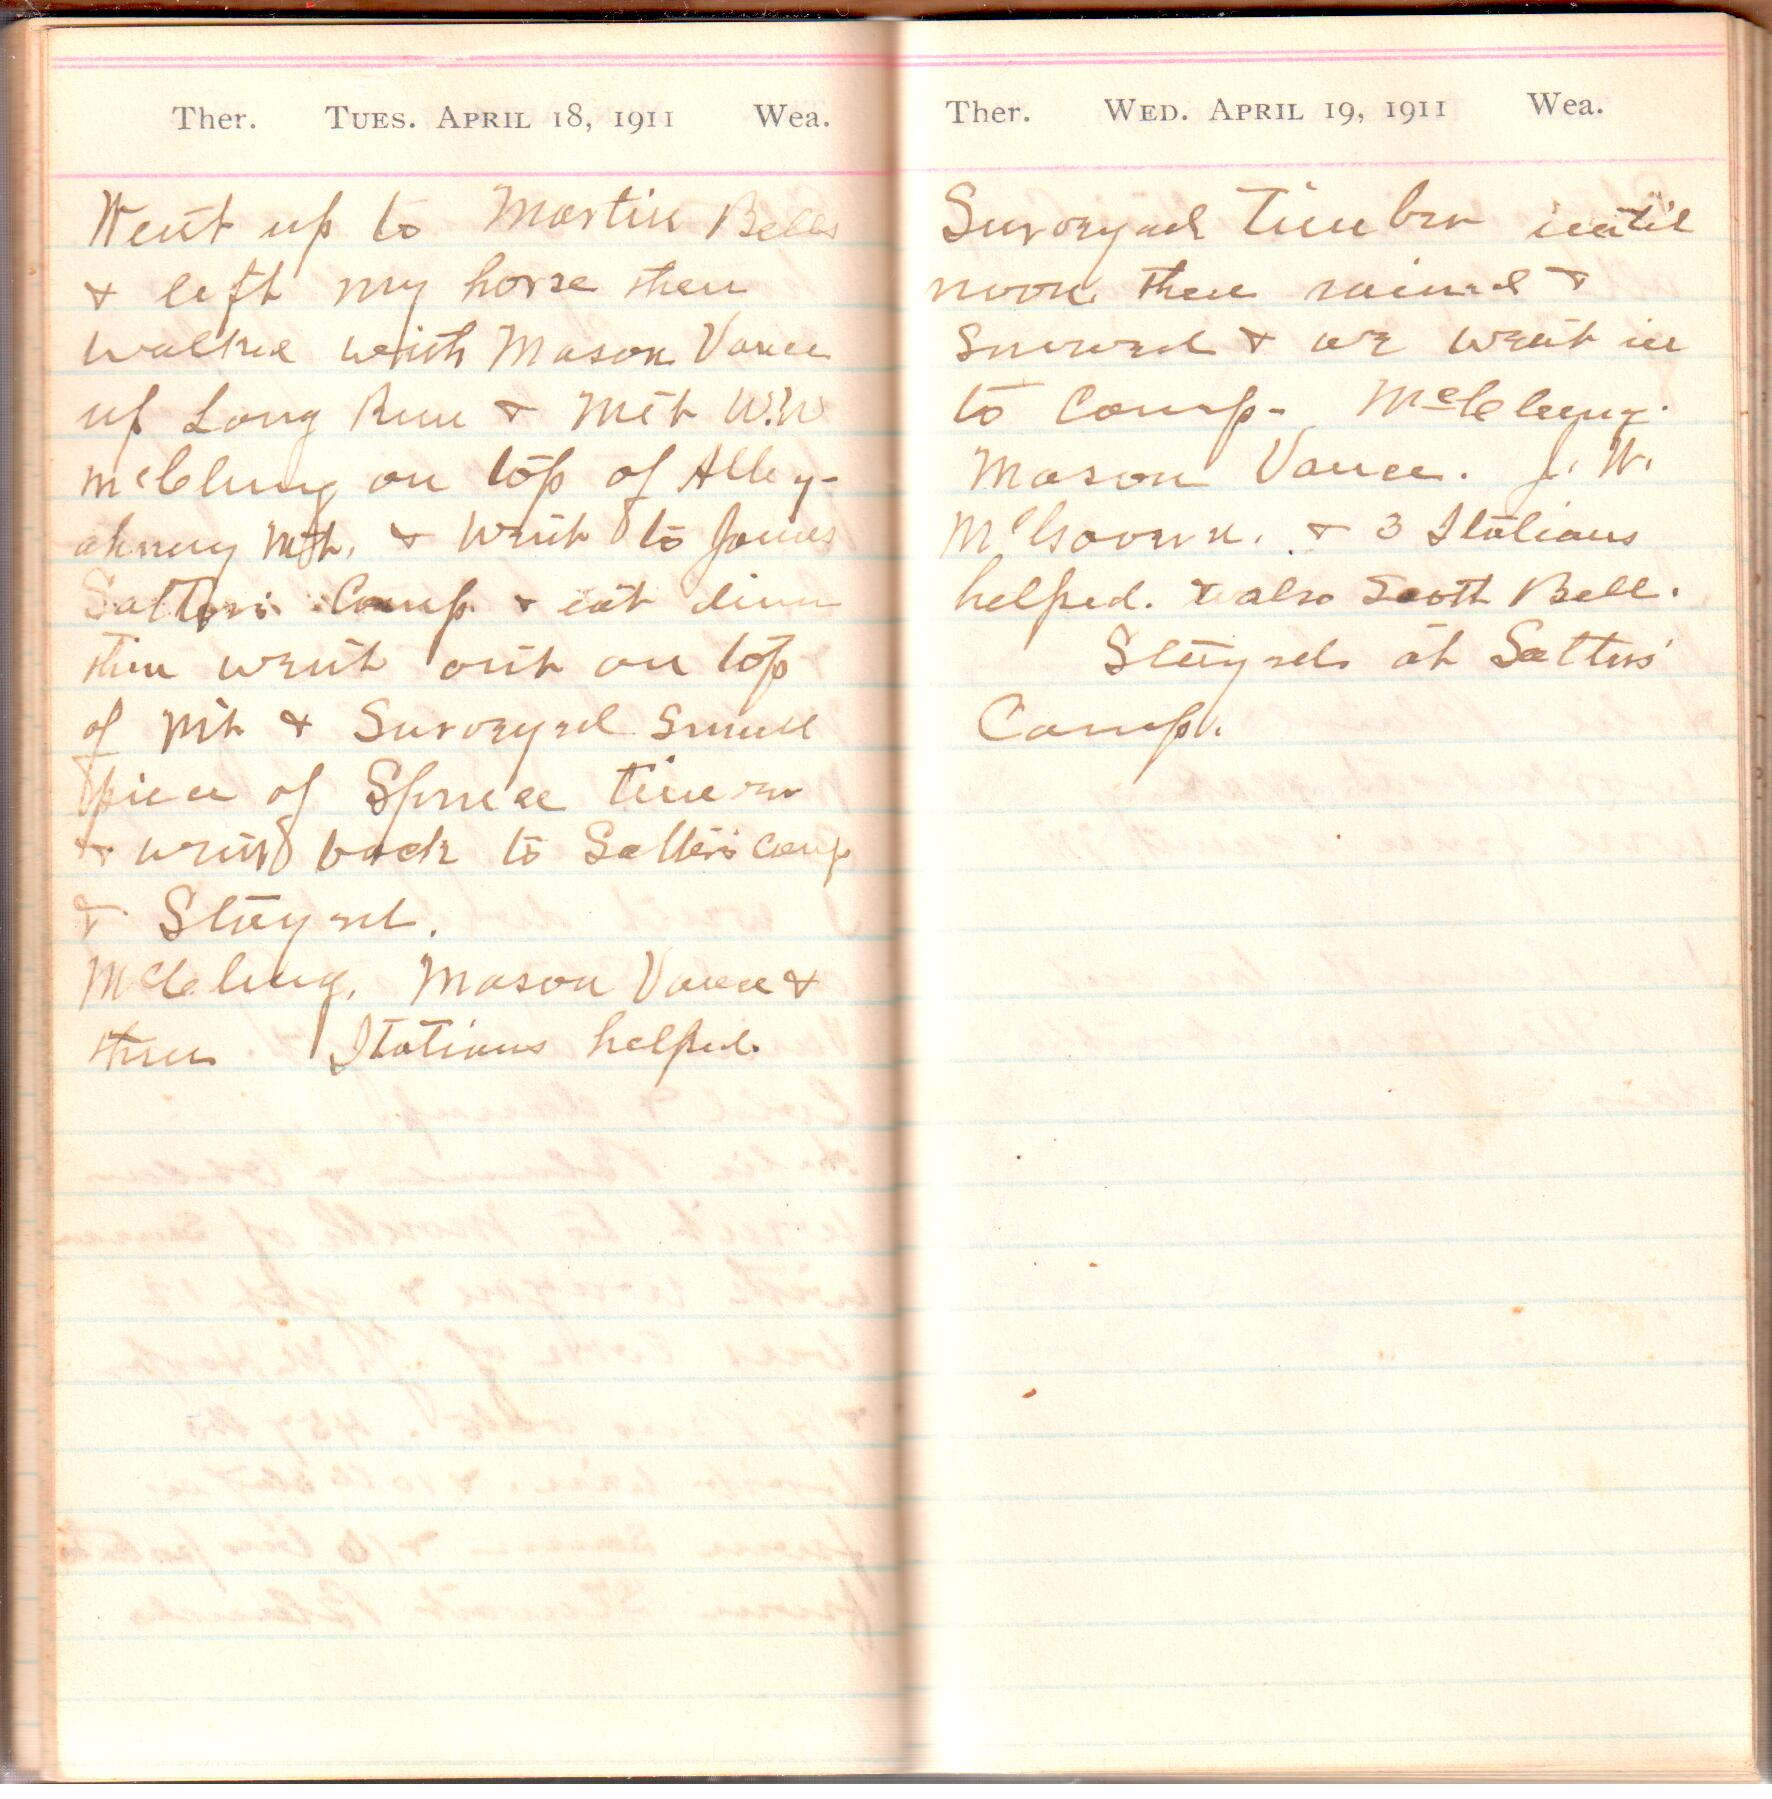 Ther. Tues. April 18, 1911 Wea.
Went up to Martin Bells
& left my horse then
walked with Mason Vance
up Long Run & Met W.W
McClung on top of Alleg-
aheny Mt. & Went to James
Satters Camp & eat dinn
then went out on top
of Mt & Surveyed small
piece of Spruce timer
& went back to Satters camp
& Stayed.
McClung, Mason Vance &
three Italians helped.
Ther. Wed. April 19, 1911 Wea.
Surveyed Timber until
noon then rained &
snowed & we went in
to Camp. McClung.
Mason Vance. J. W.
McGovern. & 3 Italians
helped. & also Scott Bell.
Stayed at Satters'
Camp.